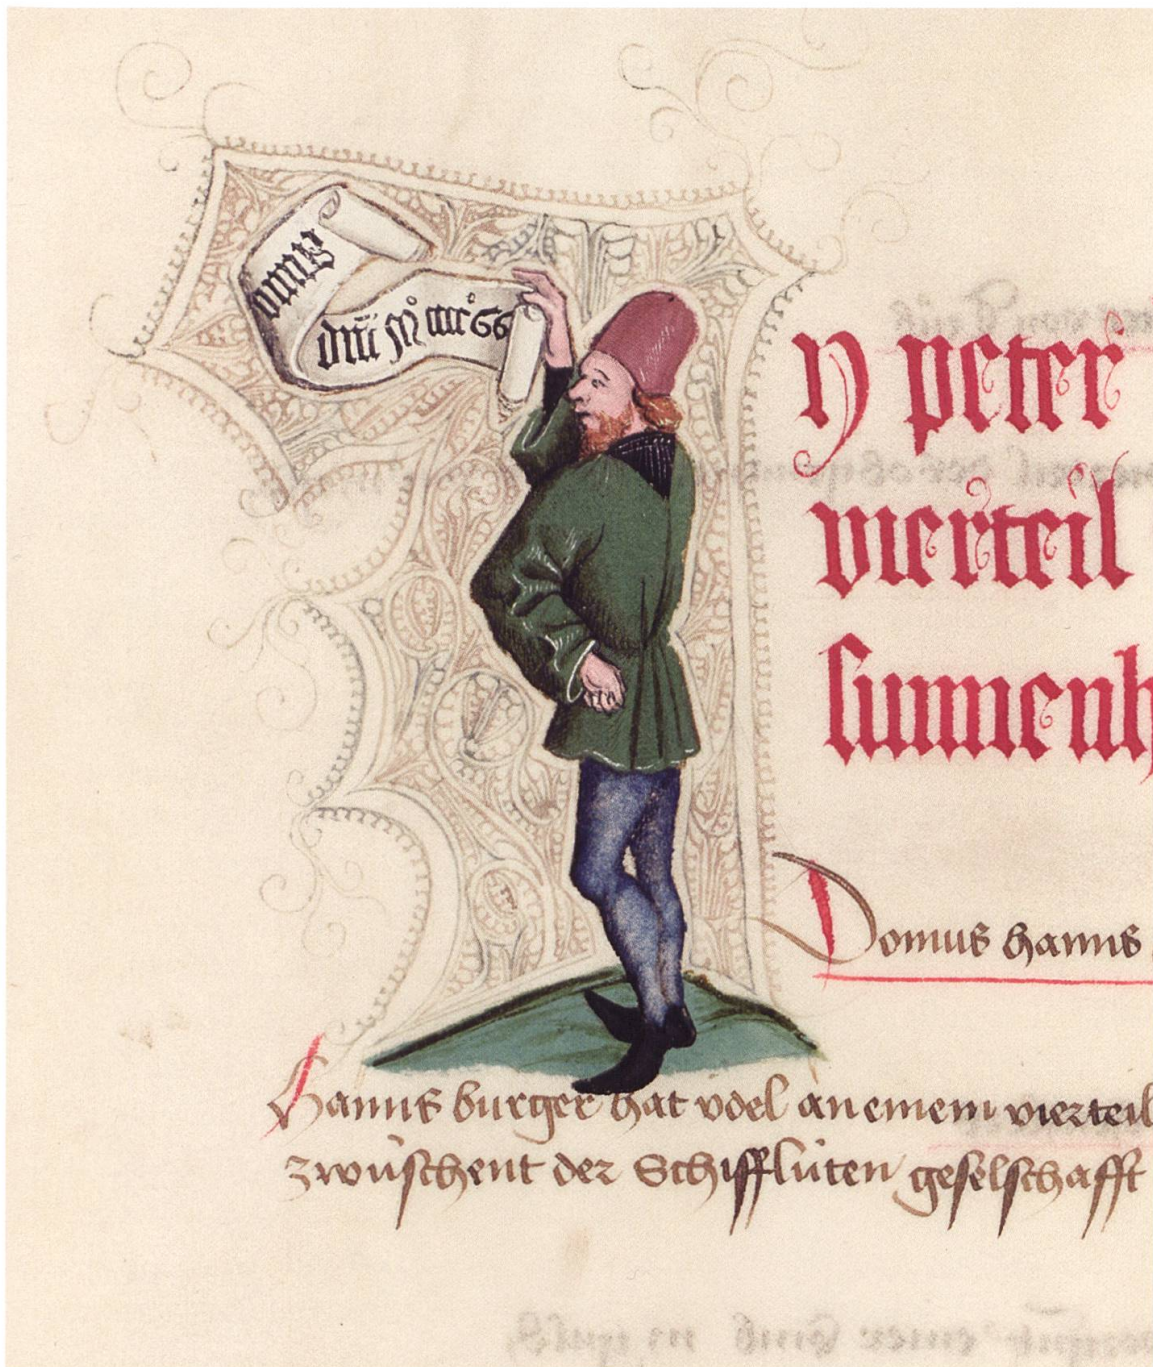 Anno
dn̄i Mͦ ccccͦ 66
y peter
vierteil
sunnenh
Domus hanns
Hanns burger hat vdel an einem vierteil
zwùschent der Schifflùten geselschafft